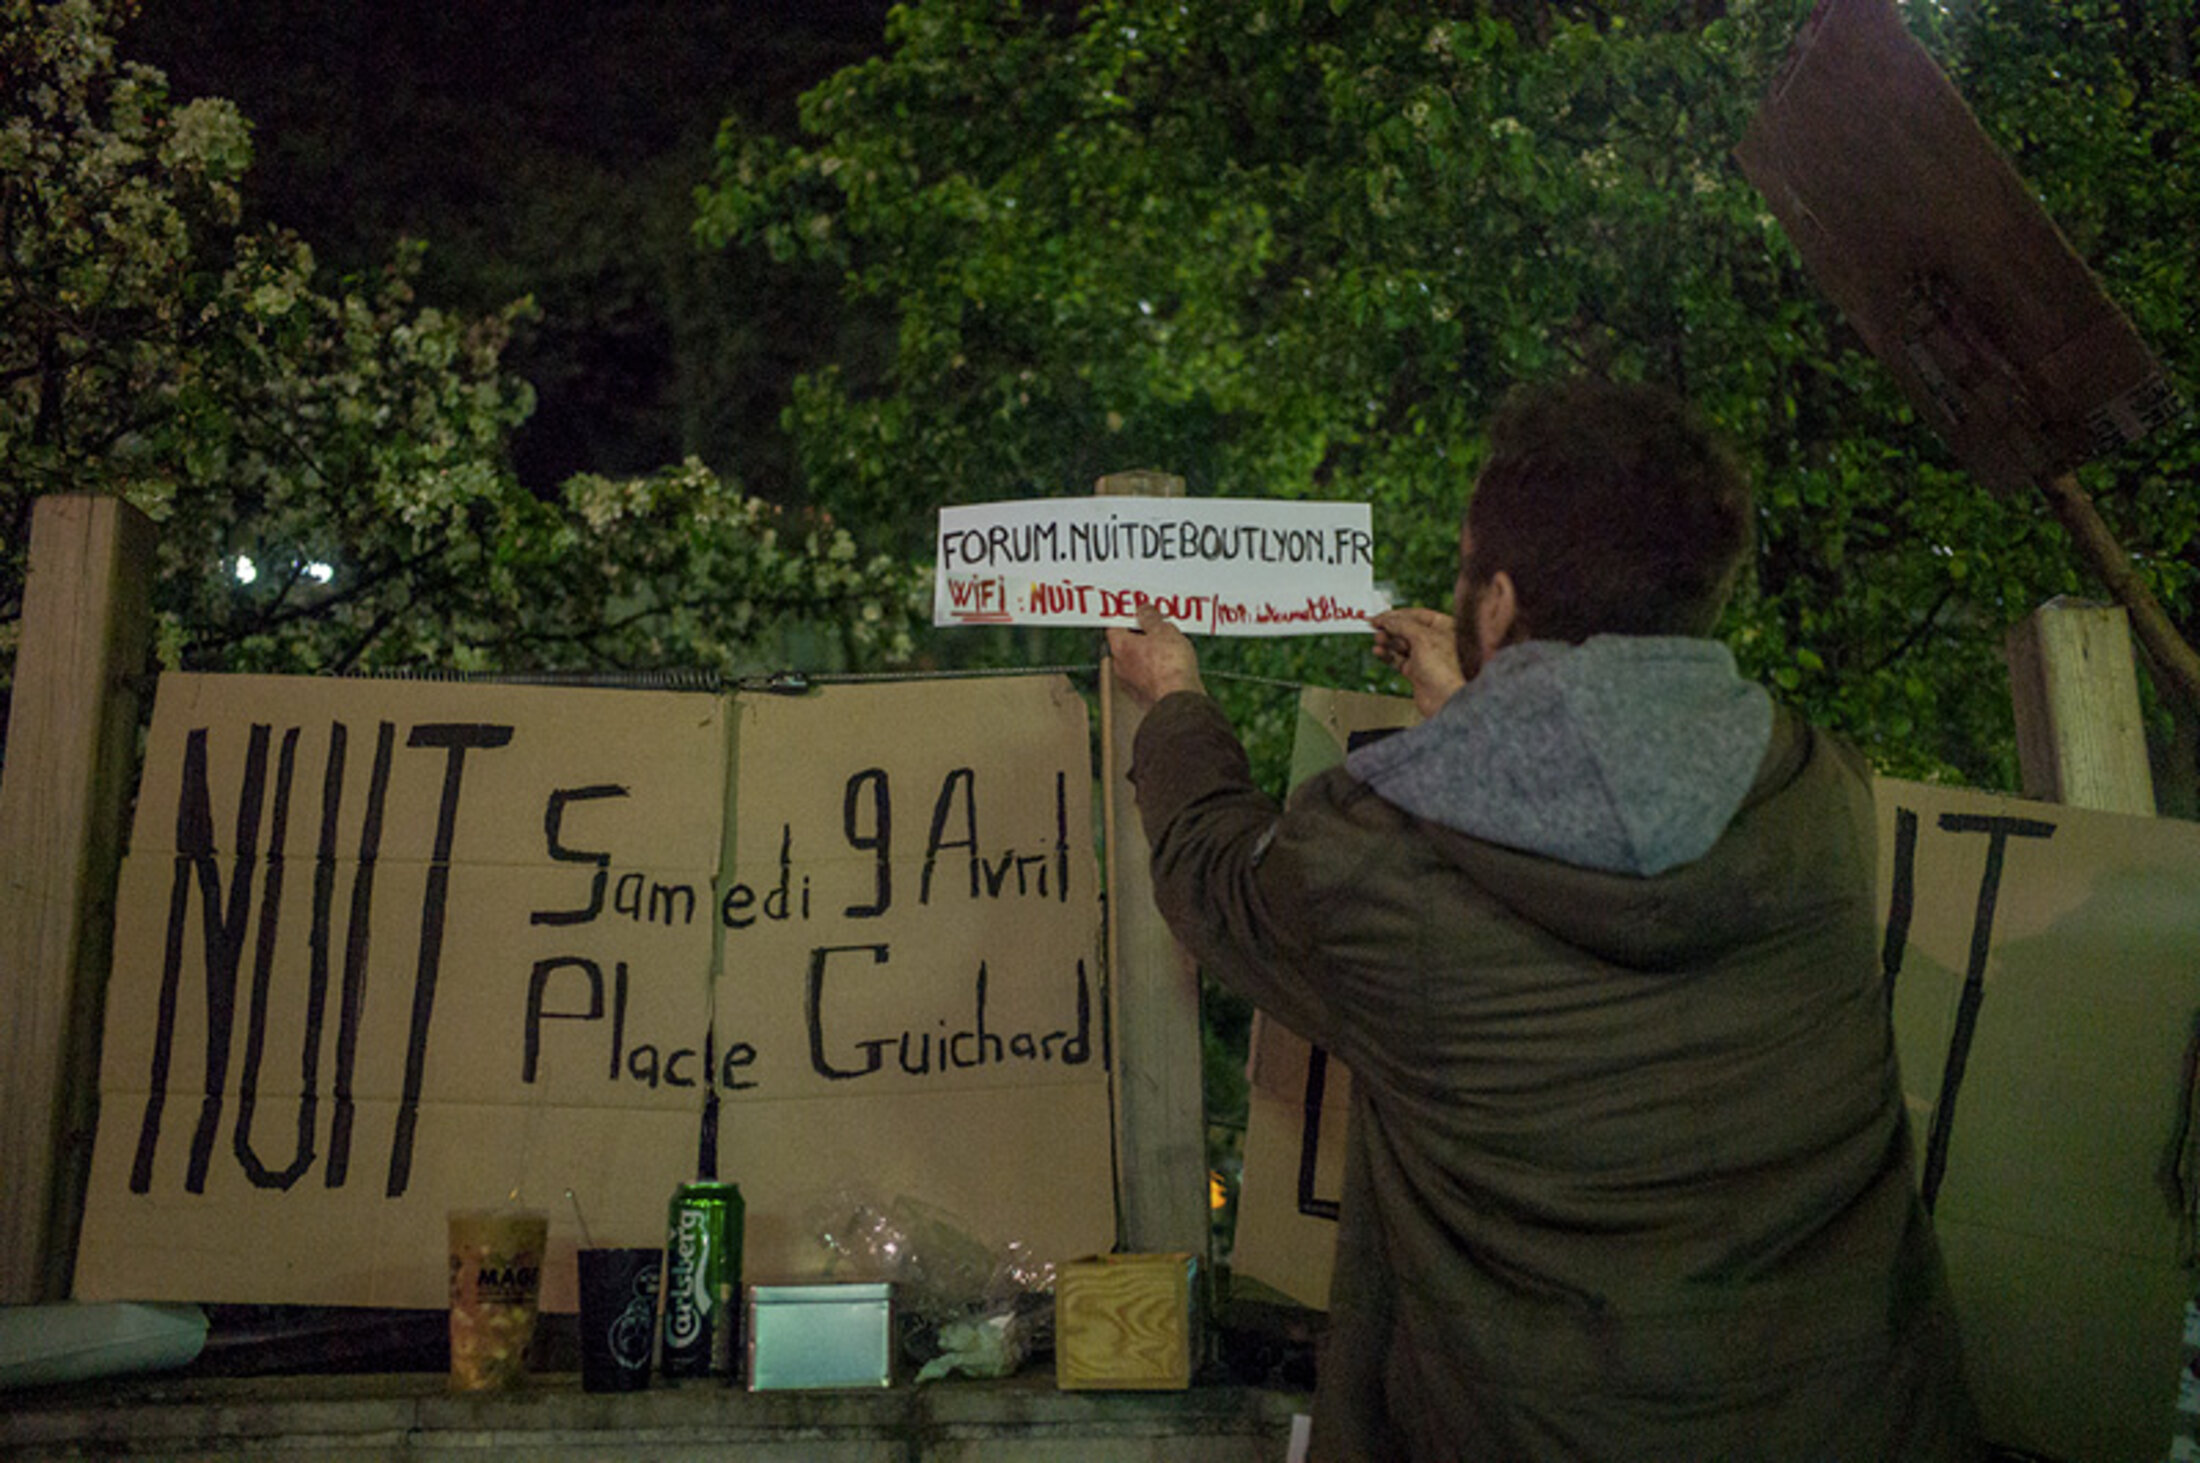 FORUM.NUITDEBOUTLYON.FR
WIFI : NUIT DEBOUT/MDP: internetlibre
NUIT
Samedi 9 Avril
Place Guichard
IT
Carlsberg